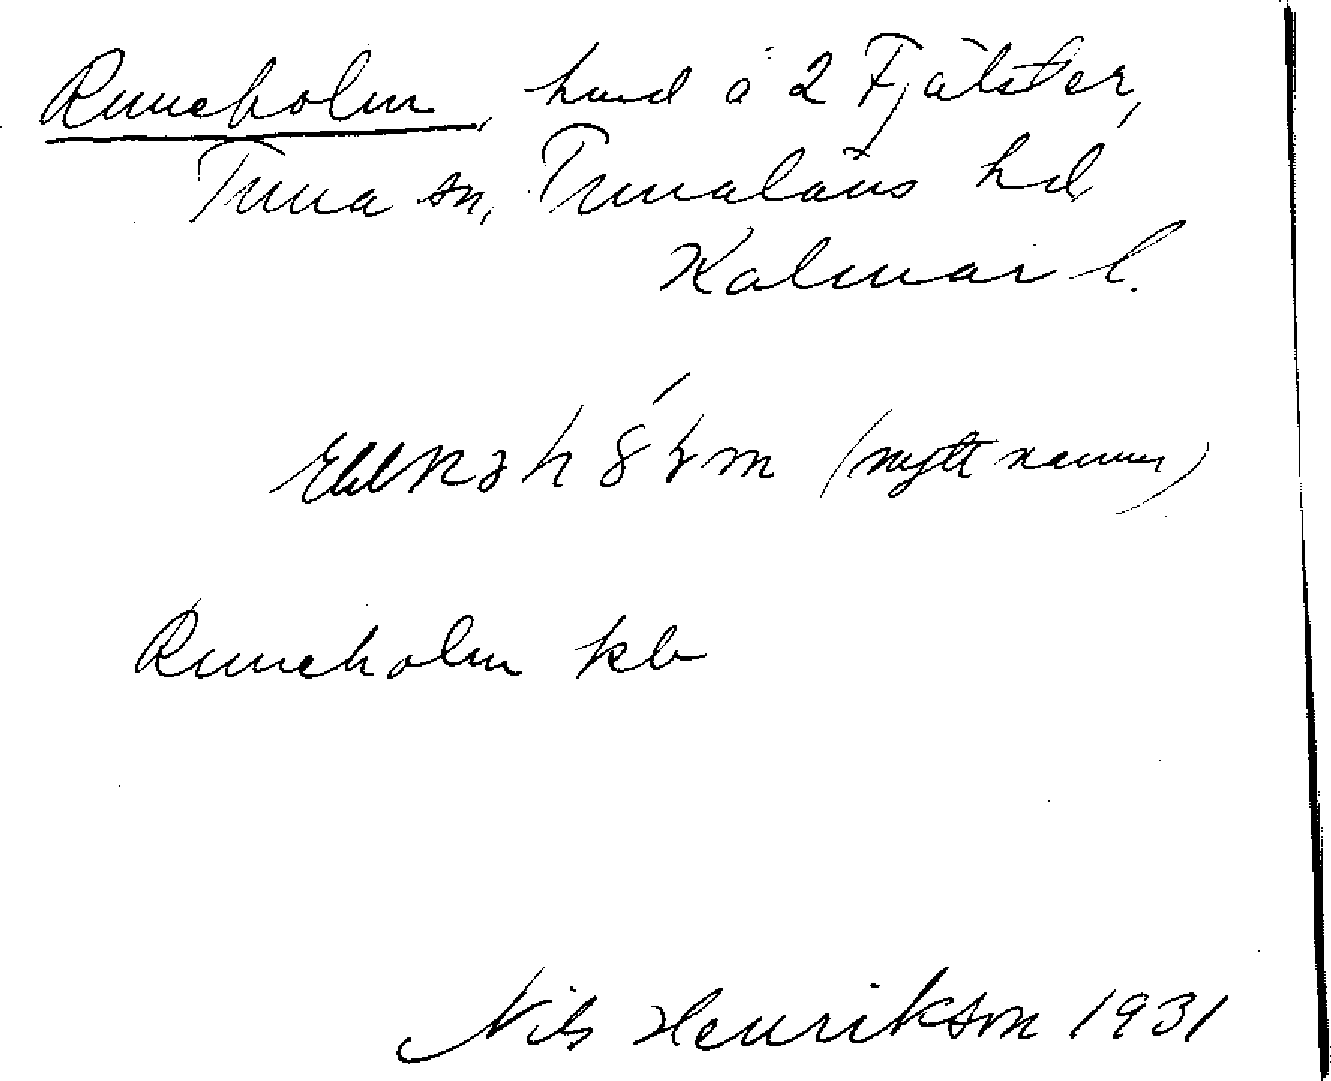 Runeholm, hund å 2 Fjälster,
Tuna sn, Tunaläns hd
Kalmar l.
(nytt namn)
Runeholm kb
Nils Henrikson 1931